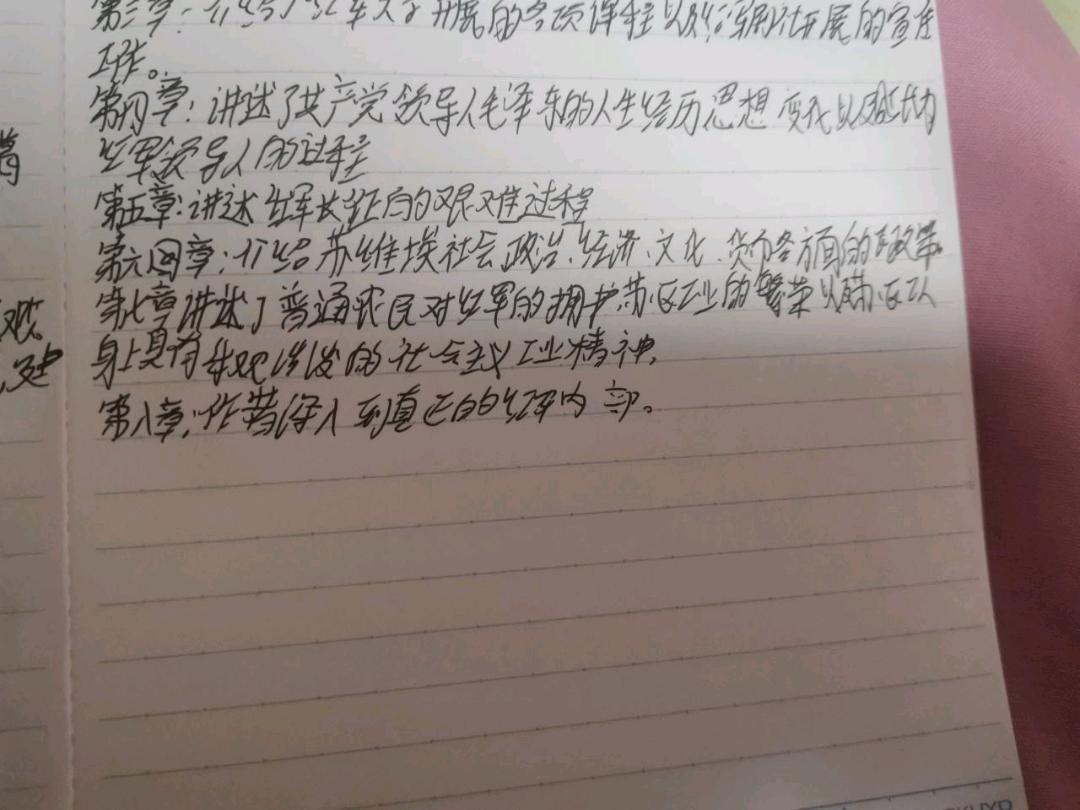 第三章：介绍了红军大学开展的各项课程以及红军剧社开展的宣传
工作。
第四章：讲述了共产党领导人毛泽东的人生经历思想变化以及成为
红军领导人的过程
第五章：讲述红军长征的艰难过程
第六章：介绍苏维埃社会、政治、经济、文化、货币各方面的政策
第七章讲述了普通农民对红军的拥护苏区工业的繁荣以及苏区工人
身上具有的社会主义工业精神，
第八章，作者深入到真正的红军内部。
著
观
处